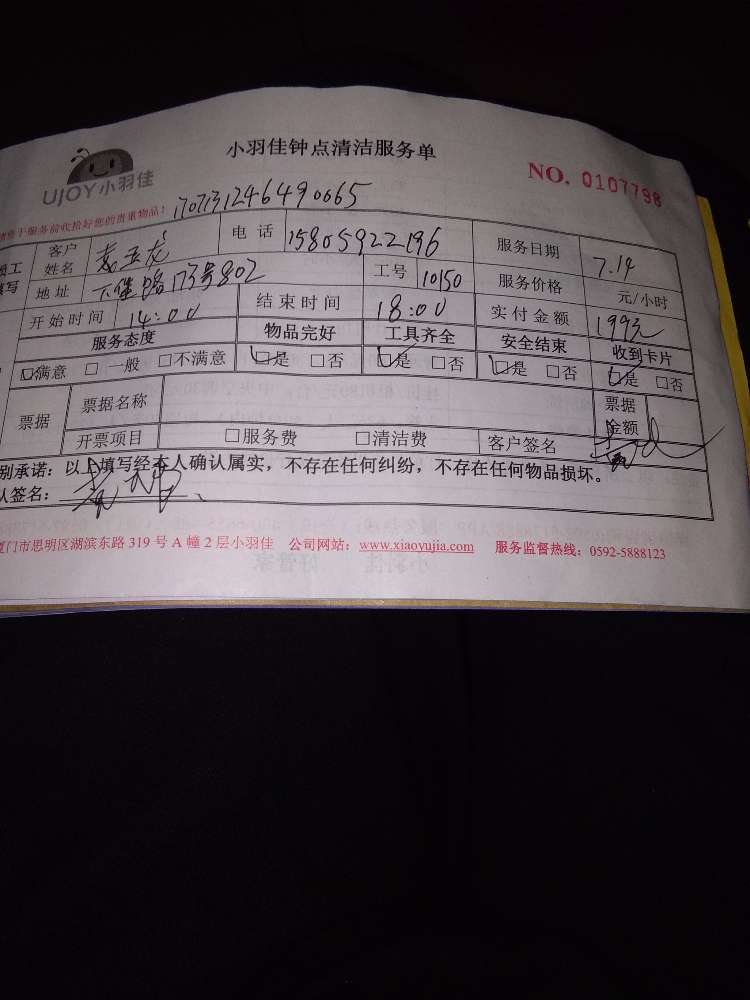 小羽佳钟点清洁服务单
UJOY小羽佳
NO. 0107798
于服务前收拾好您的贵重物品：1707131246490665
客户姓名 电话 15805922196 服务日期 7.14
地址 173号802 工号 10150 服务价格 元/小时
开始时间 14:00 结束时间 18:00 实付金额
服务态度 物品完好 工具齐全 安全结束 收到卡片
☑满意 □ 一般 □不满意 ☑是 □否 ☑是 □否 ☑是 □否 ☑是 □否
票据 票据名称 票据金额
开票项目 □服务费 □清洁费 客户签名
别承诺：以上填写经本人确认属实，不存在任何纠纷，不存在任何物品损坏。
人签名：
厦门市思明区湖滨东路 319 号 A 幢 2 层小羽佳 公司网站：www.xiaoyujia.com 服务监督热线：0592-5888123